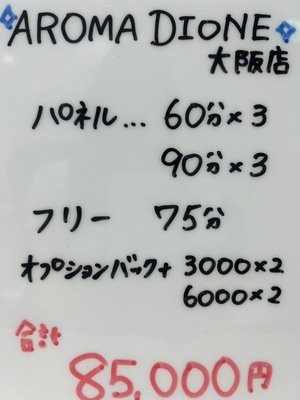 AROMA DIONE
大阪店
パネル... 60分×3
90分×3
フリー 75分
オプションバック+ 3000×2
6000×2
合計
85,000円